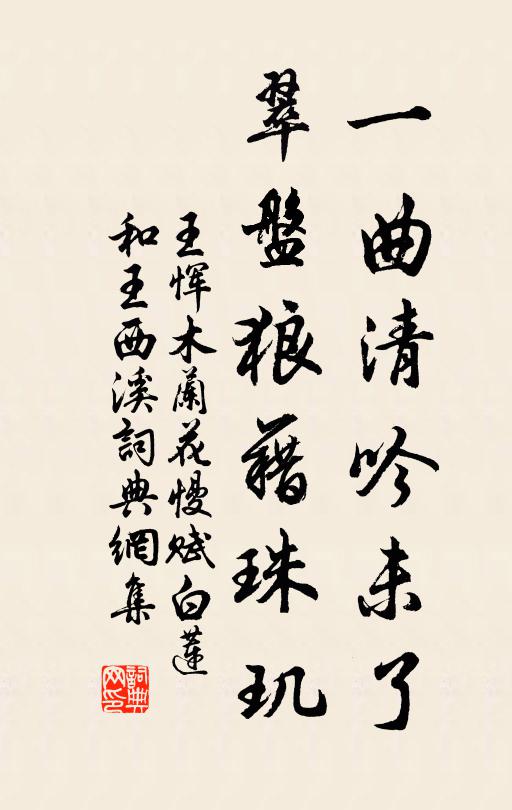 一曲清吟未了
翠盤狼藉珠玑
王惲木蘭花慢賦白蓮
和王西溪詞典網集
詞典網印